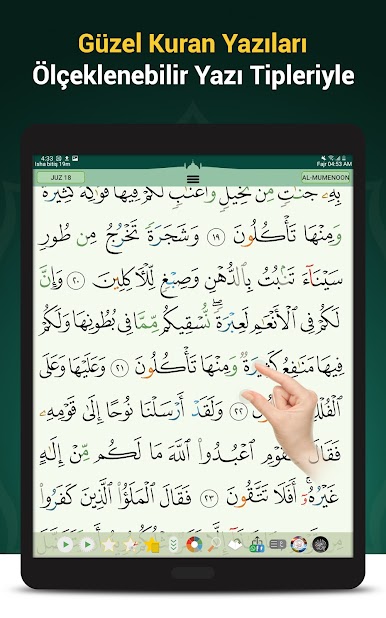 Güzel Kuran Yazıları
Ölçeklenebilir Yazı Tipleriyle
4:33
Isha bitiş 19m
Fajr 04:53 AM
JUZ 18
AL-MUMENOON
بِهِۦ جَنَّـٰتٍ مِّن نَّخِيلٍ وَأَعْنَـٰبٍ لَّكُمْ فِيهَا فَوَٰكِهُ كَثِيرَةٌ
وَمِنْهَا تَأْكُلُونَ ١٩ وَشَجَرَةً تَخْرُجُ مِن طُورِ
سَيْنَآءَ تَنۢبُتُ بِٱلدُّهْنِ وَصِبْغٍ لِّلْـَٔاكِلِينَ ٢٠ وَإِنَّ
لَكُمْ فِى ٱلْأَنْعَـٰمِ لَعِبْرَةً ۖ نُّسْقِيكُم مِّمَّا فِى بُطُونِهَا وَلَكُمْ
فِيهَا مَنَـٰفِعُ كَثِيرَةٌ وَمِنْهَا تَأْكُلُونَ ٢١ وَعَلَيْهَا وَعَلَى
ٱلْفُلْكِ تُحْمَلُونَ ٢٢ وَلَقَدْ أَرْسَلْنَا نُوحًا إِلَىٰ قَوْمِهِۦ
فَقَالَ يَـٰقَوْمِ ٱعْبُدُوا۟ ٱللَّهَ مَا لَكُم مِّنْ إِلَـٰهٍ
غَيْرُهُۥٓ ۖ أَفَلَا تَتَّقُونَ ٢٣ فَقَالَ ٱلْمَلَؤُا۟ ٱلَّذِينَ كَفَرُوا۟